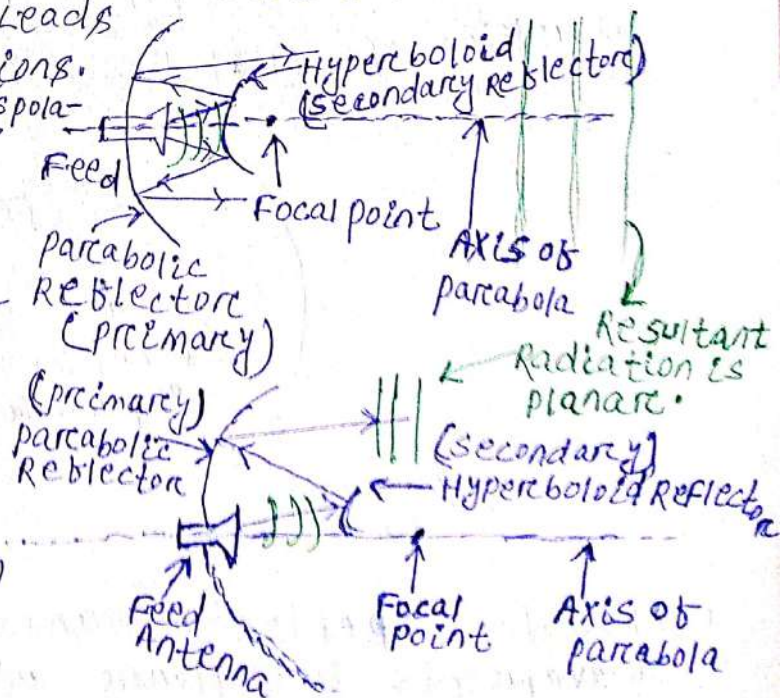 Leads
ions.
spola-
Hyperboloid
(Secondary Reflector)
Feed
Focal point
Axis of
parabola
parabolic
Reflector
(primary)
Resultant
Radiation is
planar.
(primary)
parabolic
Reflector
(secondary)
Hyperboloid Reflector
Feed
Antenna
Focal
point
Axis of
parabola